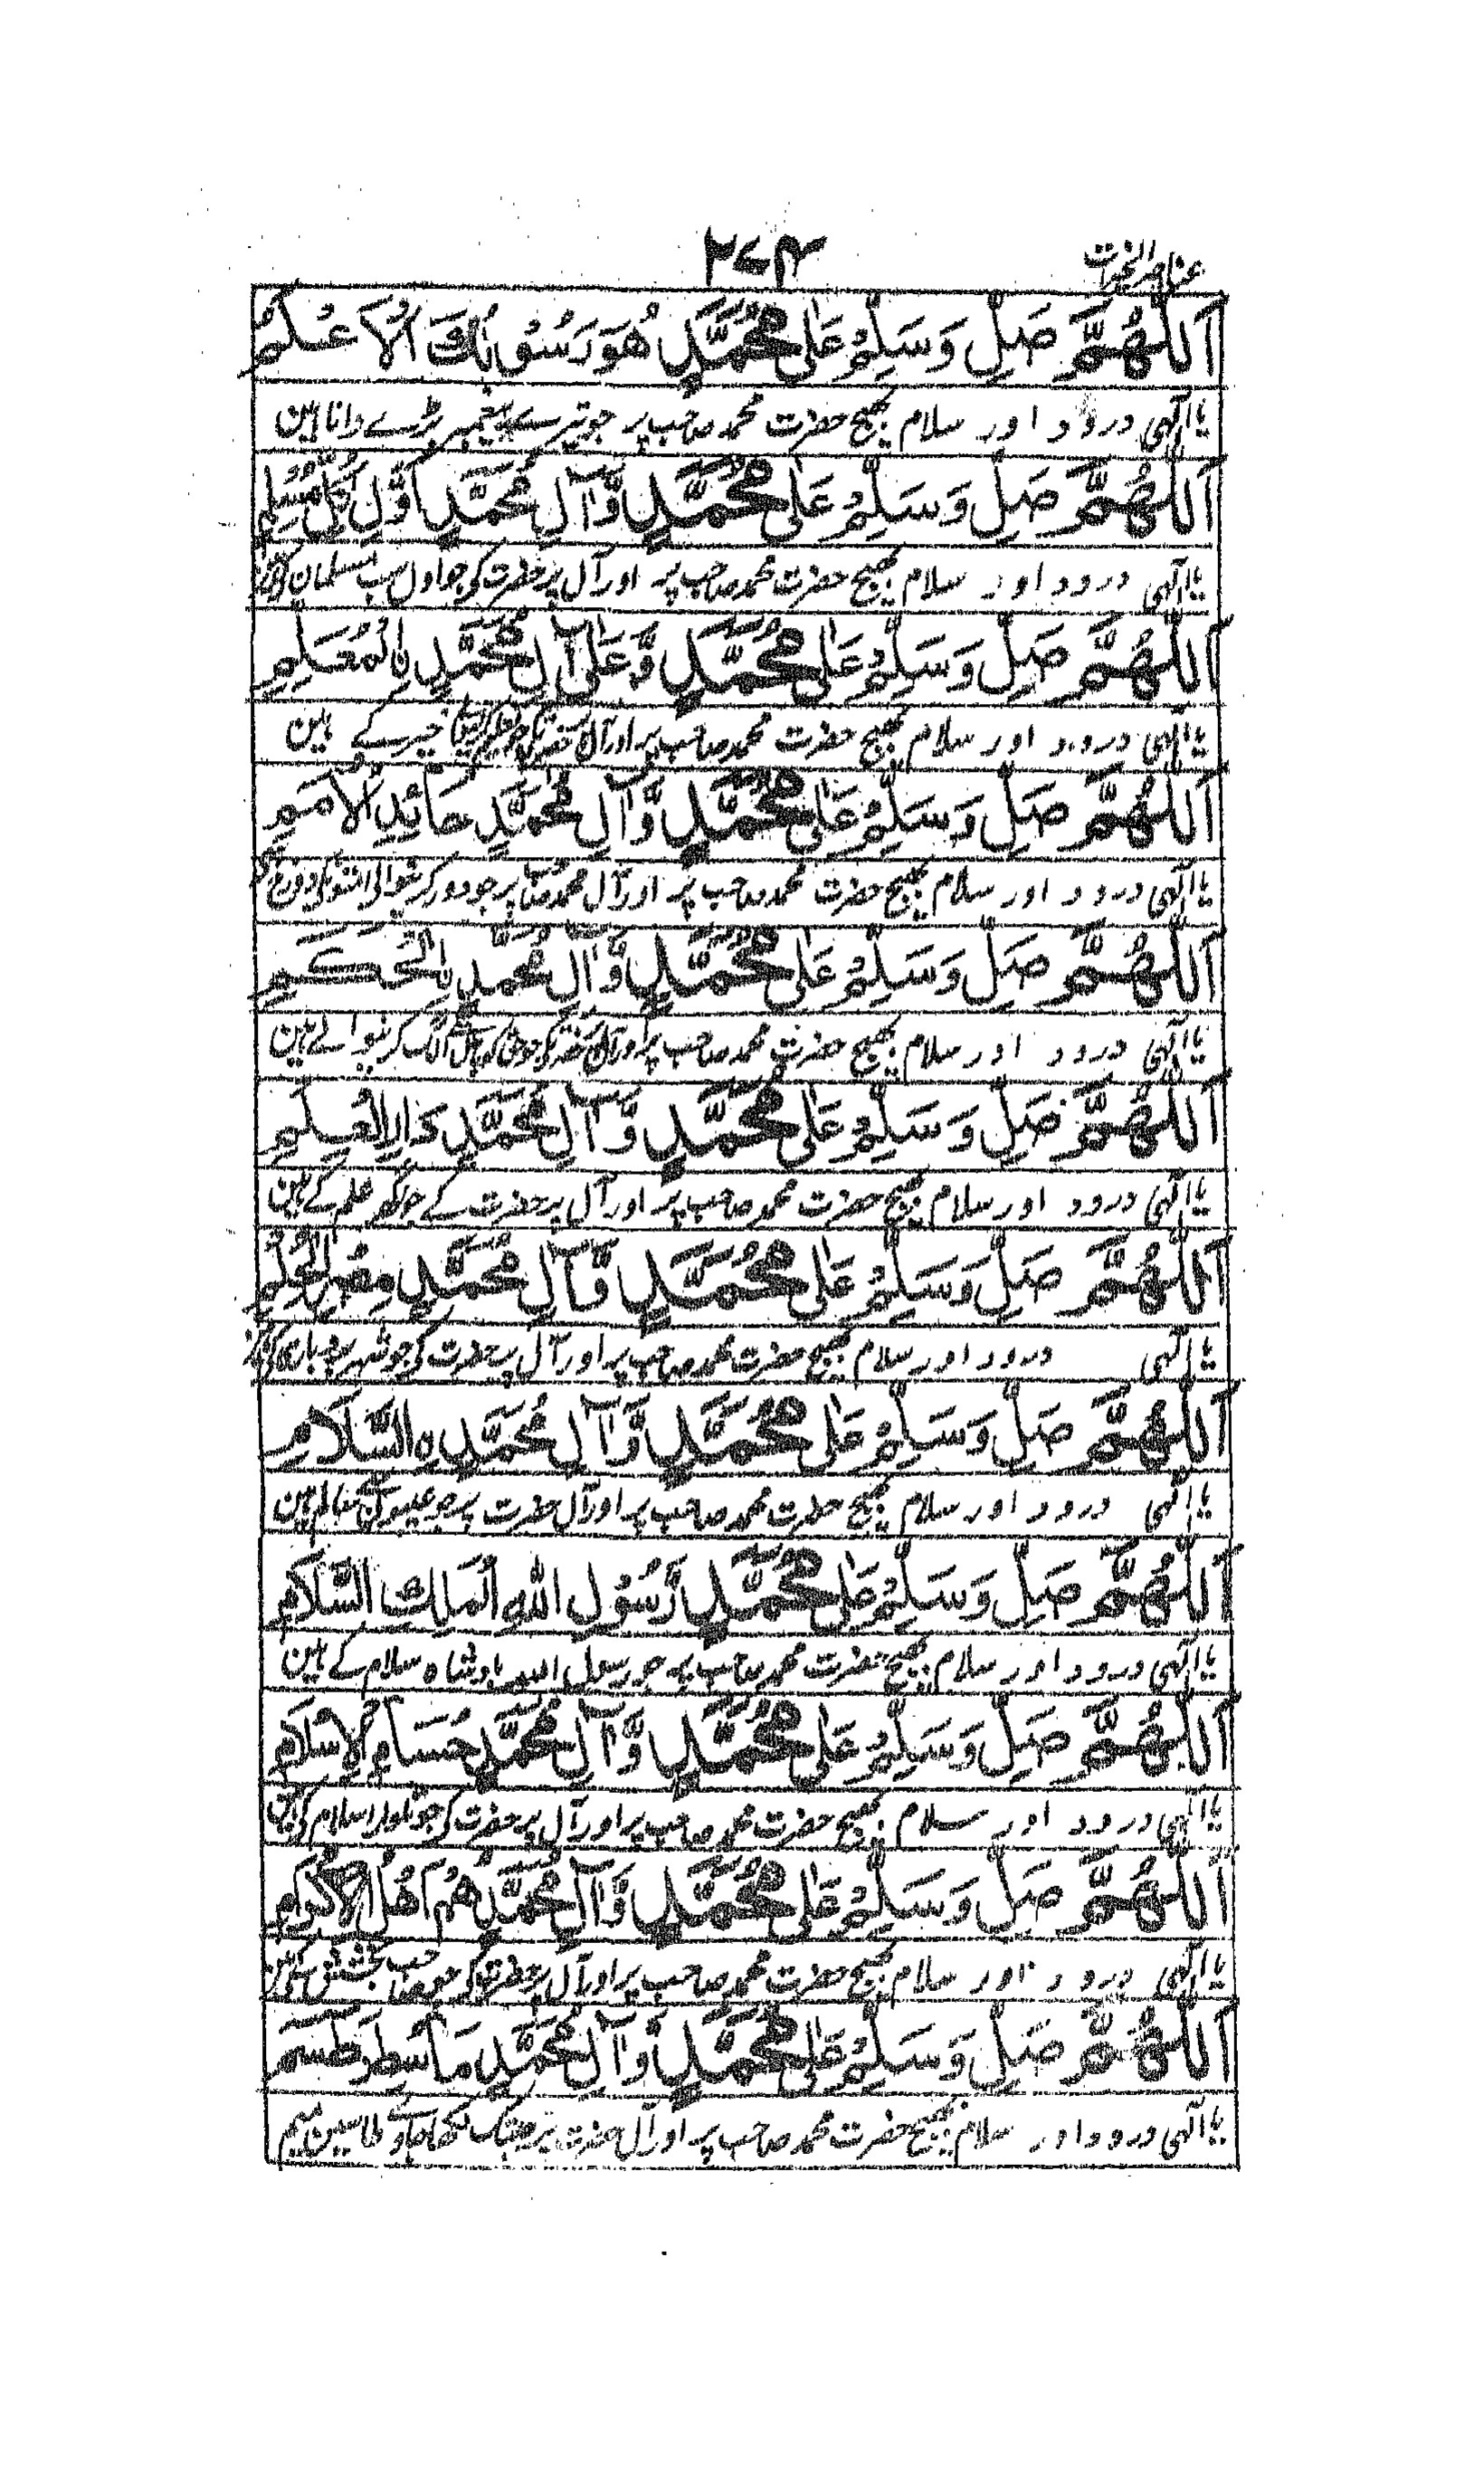 عناصر الخیرات
۲۷۴
اَللّٰهُمَّ صَلِّ وَسَلِّمْ عَلٰی مُحَمَّدٍ هُوَ رَسُوْلُكَ الْاَعْلَمُ
یا الٰہی درود اور سلام بھیج حضرت محمد صاحب پر جو تیرے پیغمبر بڑے دانا ہین
اَللّٰهُمَّ صَلِّ وَسَلِّمْ عَلٰی مُحَمَّدٍ وَّاٰلِ مُحَمَّدٍ اَوَّلِ كُلِّ مُسْلِمٍ
یا الٰہی درود اور سلام بھیج حضرت محمد صاحب پر اور آل پر حضرت کی جو اول سب مسلمان
اَللّٰهُمَّ صَلِّ وَسَلِّمْ عَلٰی مُحَمَّدٍ وَّعَلٰی اٰلِ مُحَمَّدِ ࣙالْمُعَلِّمِ
یا الٰہی درود اور سلام بھیج حضرت محمد صاحب پر اور آل خیر کے ہین
اَللّٰهُمَّ صَلِّ وَسَلِّمْ عَلٰی مُحَمَّدٍ وَّاٰلِ مُحَمَّدٍ حَائِدِ الْاُمَمِ
یا الٰہی درود اور سلام بھیج حضرت محمد صاحب پر اور آل محمد صاحب پر جو دور کرنیوالی
اَللّٰهُمَّ صَلِّ وَسَلِّمْ عَلٰی مُحَمَّدٍ وَّاٰلِ مُحَمَّدِ ࣙالْحَكَمِ
یا الٰہی درود اور سلام بھیج حضرت محمد صاحب پر اور آل الگ کرنیوالے ہین
اَللّٰهُمَّ صَلِّ وَسَلِّمْ عَلٰی مُحَمَّدٍ وَّاٰلِ مُحَمَّدٍ دَارِ الْعِلْمِ
یا الٰہی درود اور سلام بھیج حضرت محمد صاحب پر اور آل پر حضرت کے جو گھر علم کے ہین
اَللّٰهُمَّ صَلِّ وَسَلِّمْ عَلٰی مُحَمَّدٍ وَّاٰلِ مُحَمَّدٍ مِصْرِ الْحِلْمِ
یا الٰہی درود اور سلام بھیج حضرت محمد صاحب پر اور آل پر حضرت کی جو شہر بردباری
اَللّٰهُمَّ صَلِّ وَسَلِّمْ عَلٰی مُحَمَّدٍ وَّاٰلِ مُحَمَّدِ ࣙالسَّلَامِ
یا الٰہی درود اور سلام بھیج حضرت محمد صاحب پر اور آل حضرت پر جو عیبون سالم ہین
اَللّٰهُمَّ صَلِّ وَسَلِّمْ عَلٰی مُحَمَّدٍ رَّسُوْلِ اللّٰهِ الْمَلِكِ السَّلَامِ
یا الٰہی درود اور سلام بھیج حضرت محمد صاحب پر جو رسول اللہ بادشاہ سلام کے ہین
اَللّٰهُمَّ صَلِّ وَسَلِّمْ عَلٰی مُحَمَّدٍ وَّاٰلِ مُحَمَّدٍ حُسَامِ الْاِسْلَامِ
یا الٰہی درود اور سلام بھیج حضرت محمد صاحب پر اور آل پر حضرت کی جو تلوار اسلام کی ہین
اَللّٰهُمَّ صَلِّ وَسَلِّمْ عَلٰی مُحَمَّدٍ وَّاٰلِ مُحَمَّدٍ هُمْ اَهْلُ الْاِكْرَامِ
یا الٰہی درود اور سلام بھیج حضرت محمد صاحب پر اور آل پر حضرت کی جو صاحب بخشش
اَللّٰهُمَّ صَلِّ وَسَلِّمْ عَلٰی مُحَمَّدٍ وَّاٰلِ مُحَمَّدٍ مَا سُطِرَ طٰسٓمٓ
یا الٰہی درود اور سلام بھیج حضرت محمد صاحب پر اور آل حضرت پر جبتک لکھا جاوے طا سین میم